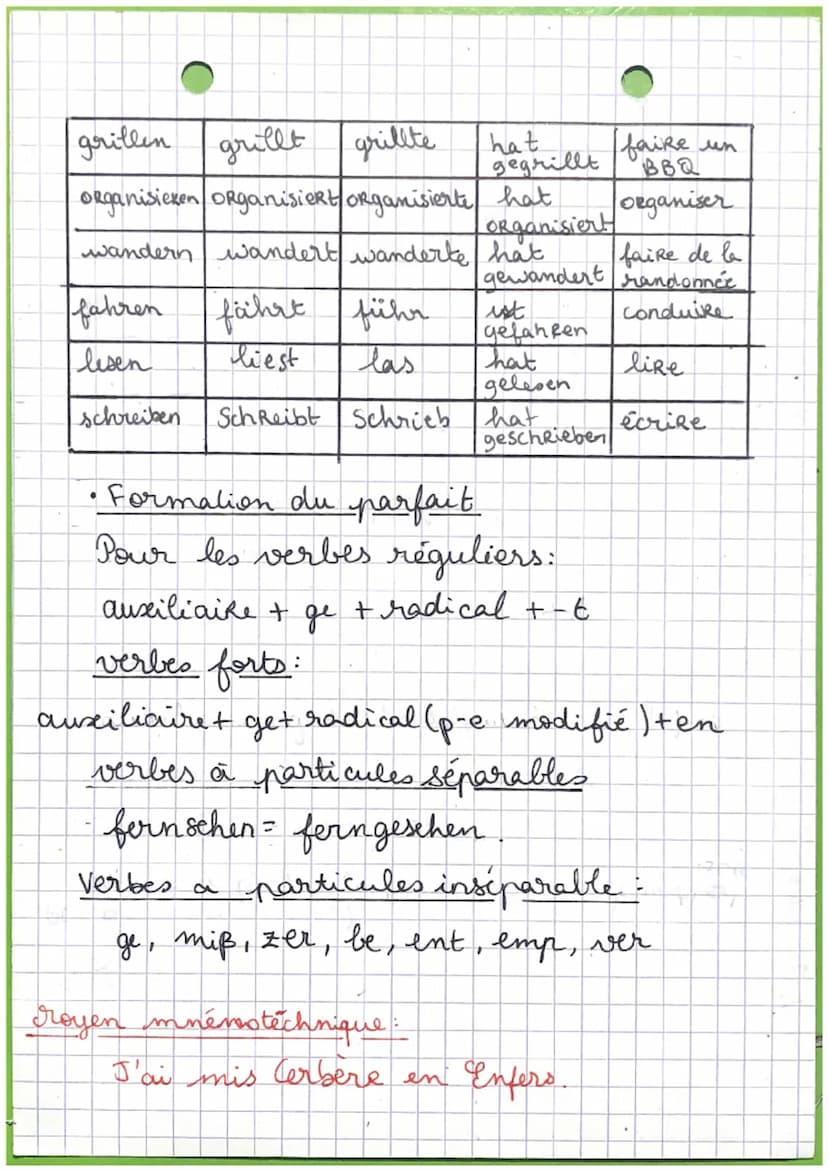 grillen grillt grillte hat gegrillt faire un BBQ
organisieren organisiert organisierte hat organisiert organiser
wandern wandert wanderte hat gewandert faire de la randonnée
fahren fährt führ ist gefahren conduire
lesen liest las hat gelesen lire
schreiben schreibt schrieb hat geschrieben écrire
• Formation du parfait
Pour les verbes réguliers:
auxiliaire + ge + radical + -t
verbes forts:
auxiliaire + ge + radical (p-e modifié) + en
verbes à particules séparables
- fernsehen = ferngesehen.
Verbes a particules inséparable :
ge, miß, zer, be, ent, emp, ver
Moyen mnémotéchnique:
J'ai mis Cerbère en Enfers.